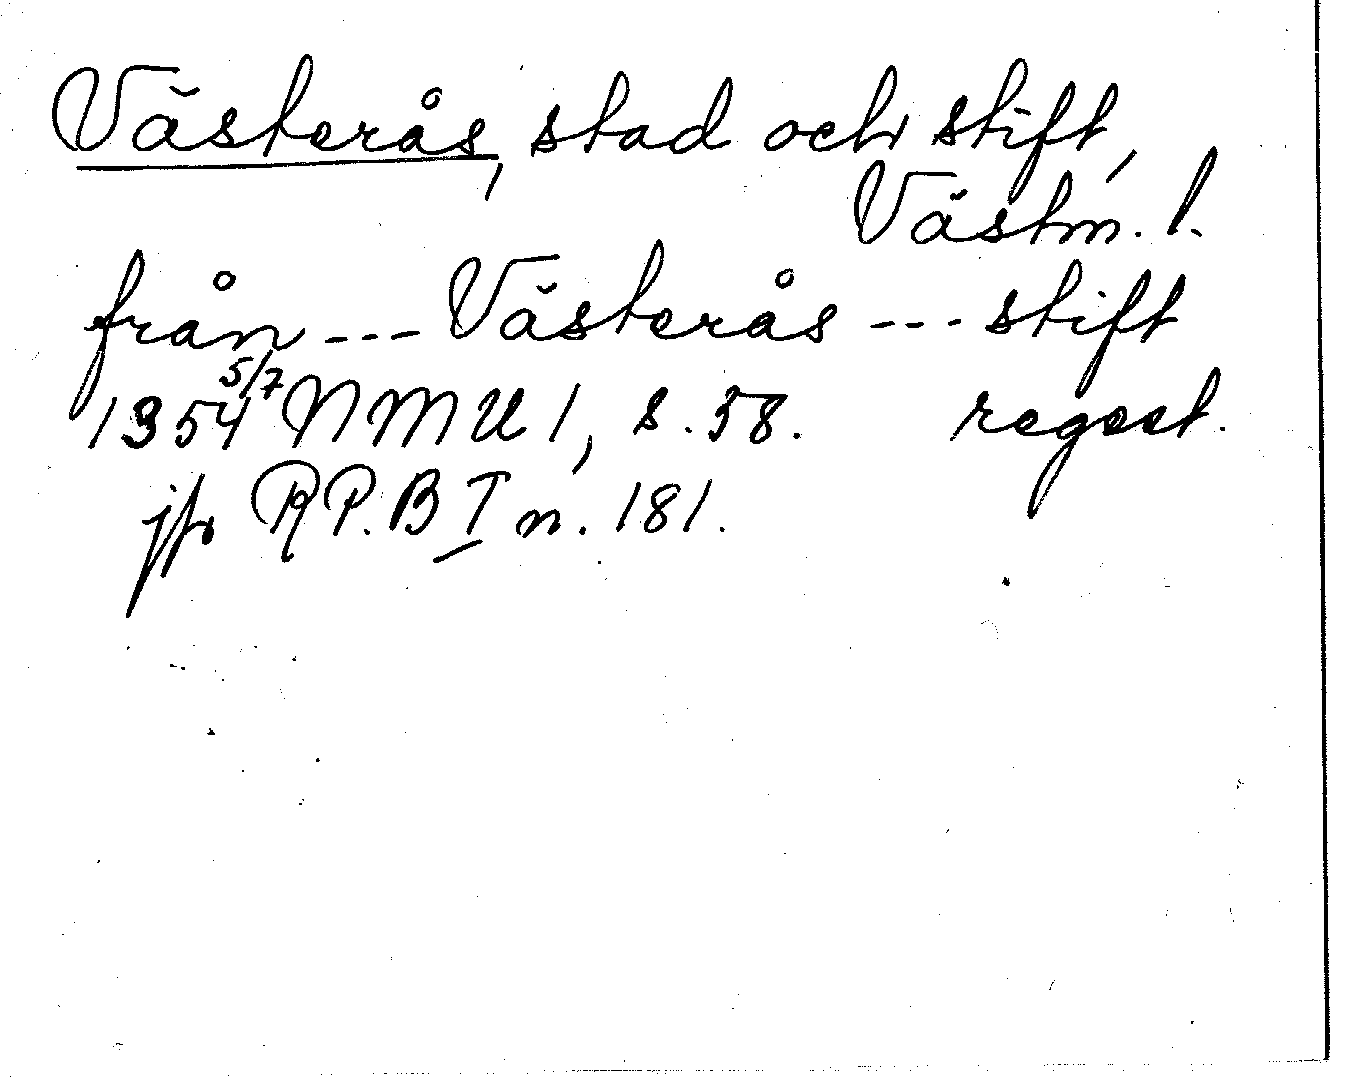 Västerås, stad och stift,
Västm. l.
från --- Västerås --- stift
1354 5/7 NMU 1, s. 58. regest.
jfr RP.B I n. 181.